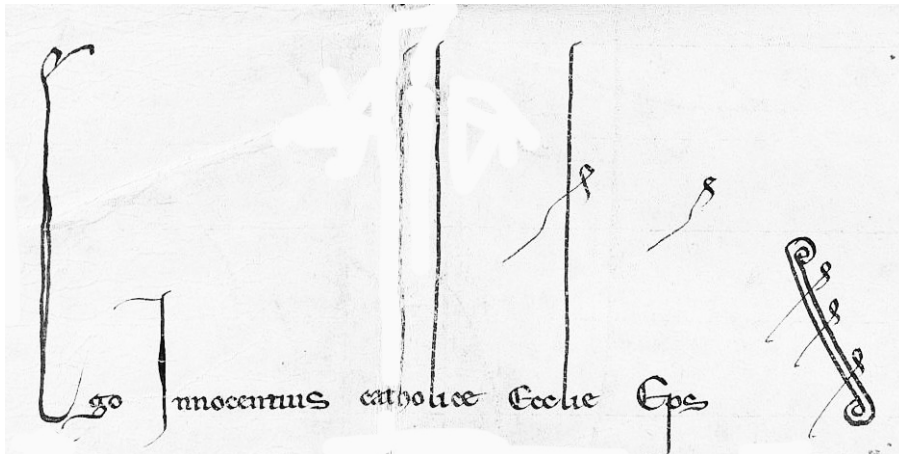 Ego Innocentius catholice Ecclie Eps SS